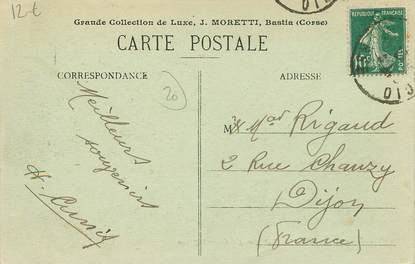 12-€
Grande Collection de Luxe, J. MORETTI, Bastia (Corse)
CARTE POSTALE
CORRESPONDANCE
ADRESSE
20
Meilleurs
souvenirs
M
Rigaud
2 Rue Chanzy
Dijon
(France)
10
POSTES